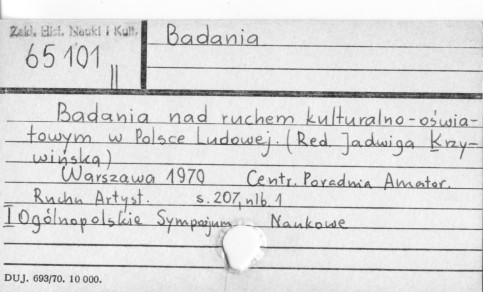 Zakł. Hist. Nauki i Kult.
65 101 ||
Badania
Badania nad ruchem kulturalno-oświa-
towym w Polsce Ludowej. (Red. Jadwiga Krzy-
wińska)
Warszawa 1970 Centr. Poradnia Amator.
Ruchu Artyst. s. 207, nlb. 1
I Ogólnopolskie Sympozjum Naukowe
DUJ. 693/70. 10 000.